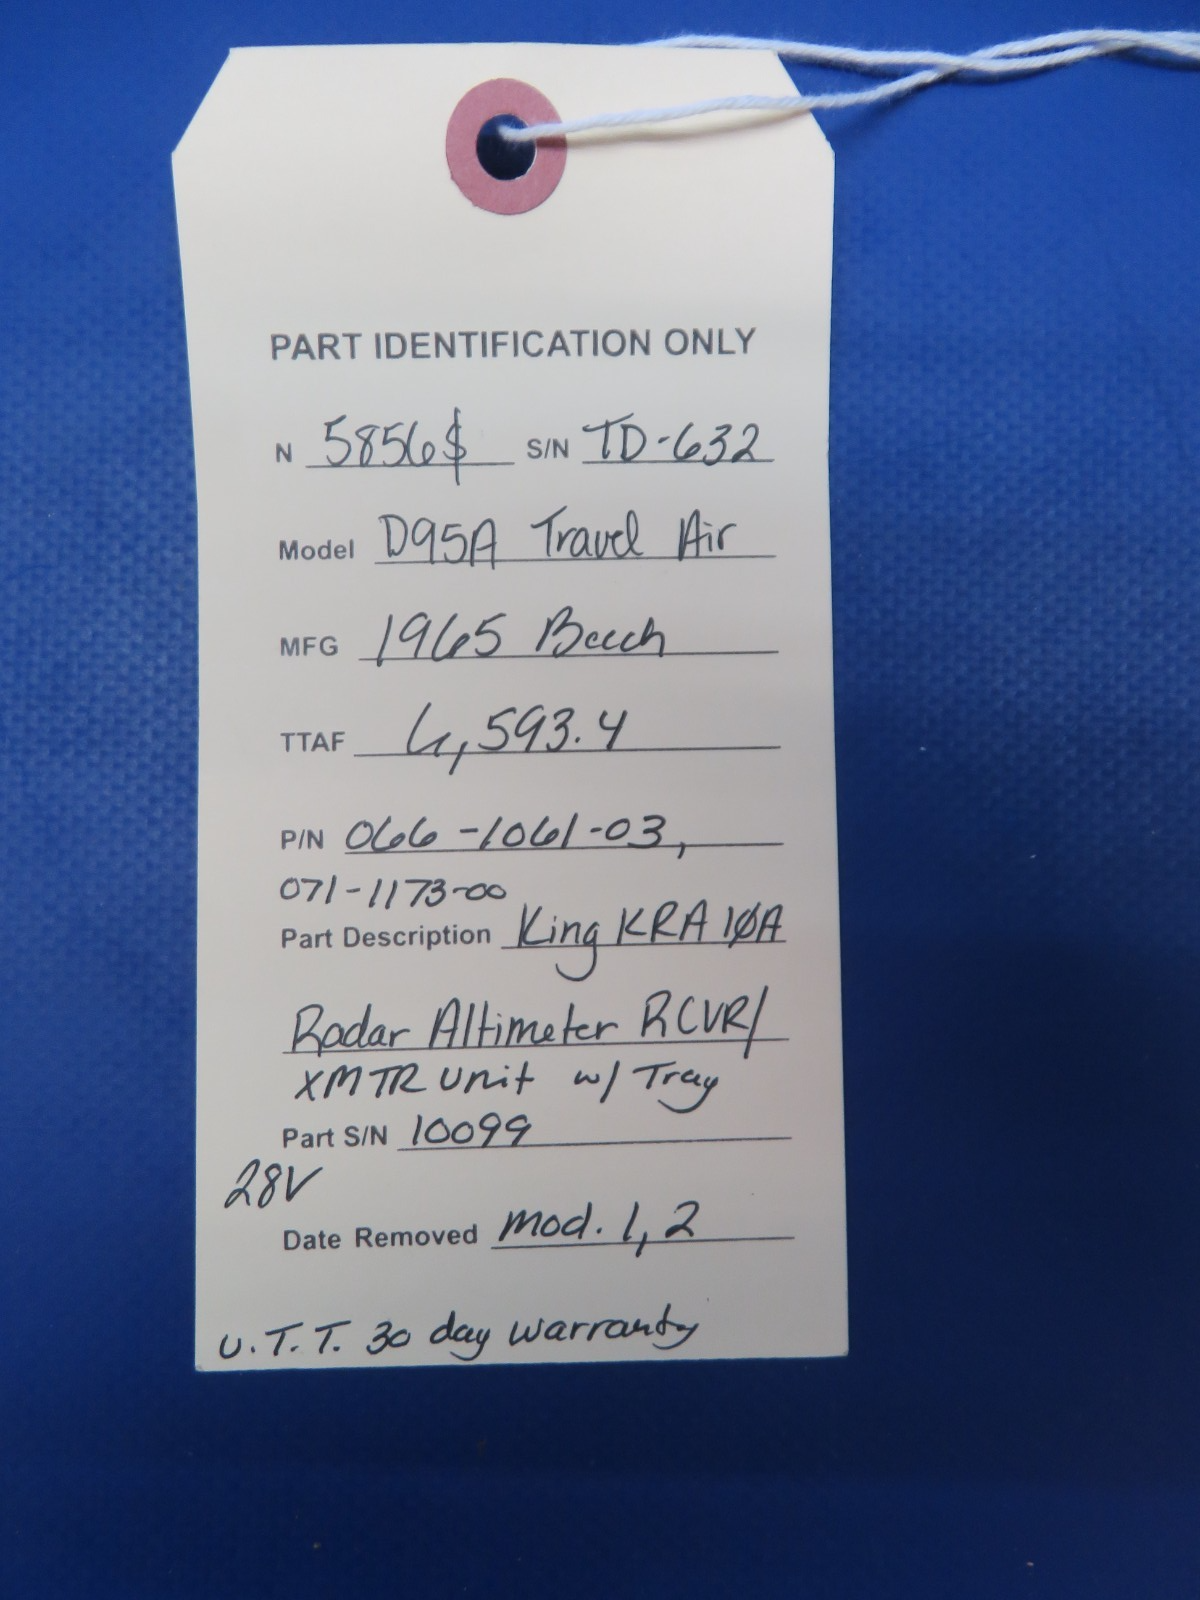 PART IDENTIFICATION ONLY
N 5856$ S/N TD-632
Model D95A Travel Air
MFG 1965 Beech
TTAF 6,593.4
P/N 066-1061-03,
071-1173-00
Part Description King KRA 10A
Radar Altimeter RCVR/
XMTR unit w/ Tray
Part S/N 10099
28V
Date Removed Mod. 1, 2
U.T.T. 30 day warranty